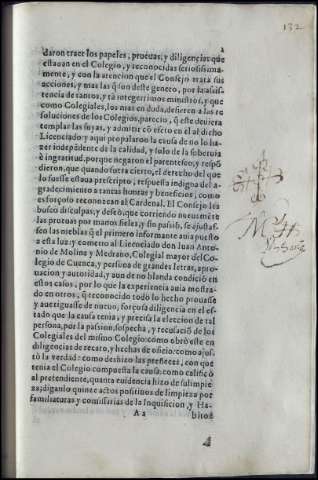 132
2
daron traer los papeles, prueuas, y diligencias que
estauan en el Colegio, y reconocidas seriosissima-
mente, y con la atencion que el Consejo trata sus
acciones, y mas las q̃ son deste genero, por la assis-
tencia de tantos, y tã integerrimos ministros, y que
como Colegiales, los mas en duda, defieren a las re
soluciones de los Colegios, parecio, q̃ este deuiera
templar las suyas, y admitir cõ efeto en el al dicho
Licenciado, y aqui propalaron la causa de no lo ha-
zer independẽte de la calidad, y solo de la soberuia
è ingratitud, porque negaron el parentesco, y respõ
dieron, que quando fuera cierto, el derecho del que
lo fuesse estaua prescripto, respuesta indigna del a-
gradecimiento a tantas honras y beneficios, como
es forçoso reconozcan al Cardenal. El Consejo les
buscò disculpas, y desseò, que corriendo nueuamẽte
las prueuas por manos fieles, y sin passiõ, se ajustas-
sen las nieblas q̃ el primero informante auia puesto
a esta luz: y cometio al Licenciado don Iuan Anto-
nio de Molina y Medrano, Colegial mayor del Co-
legio de Cuenca, persona de grandes letras, apro-
uacion y autoridad, y aun de no blanda condiciõ en
estos casos, por lo que la experiencia auia mostra-
do en otros, q̃ reconocido todo lo hecho prouasse
y aueriguasse de nueuo, forçosa diligencia en el es-
tado que la causa tenia, y precisa la eleccion de tal
persona, por la passion, sospecha, y recusaciõ de los
Colegiales del mismo Colegio: como obrò este en
diligencias de recato, y hechas de oficio: como ajus-
tò la verdad: como deshizo las preñezes, con que
tenia el Colegio compuesta la causa: como calificò
al pretendiente, quanta euidencia hizo de su limpie
za; diganlo quinze actos positiuos de limpieza por
familiaturas y comissarias de la Inquisicion, y Ha-
Aa bitos